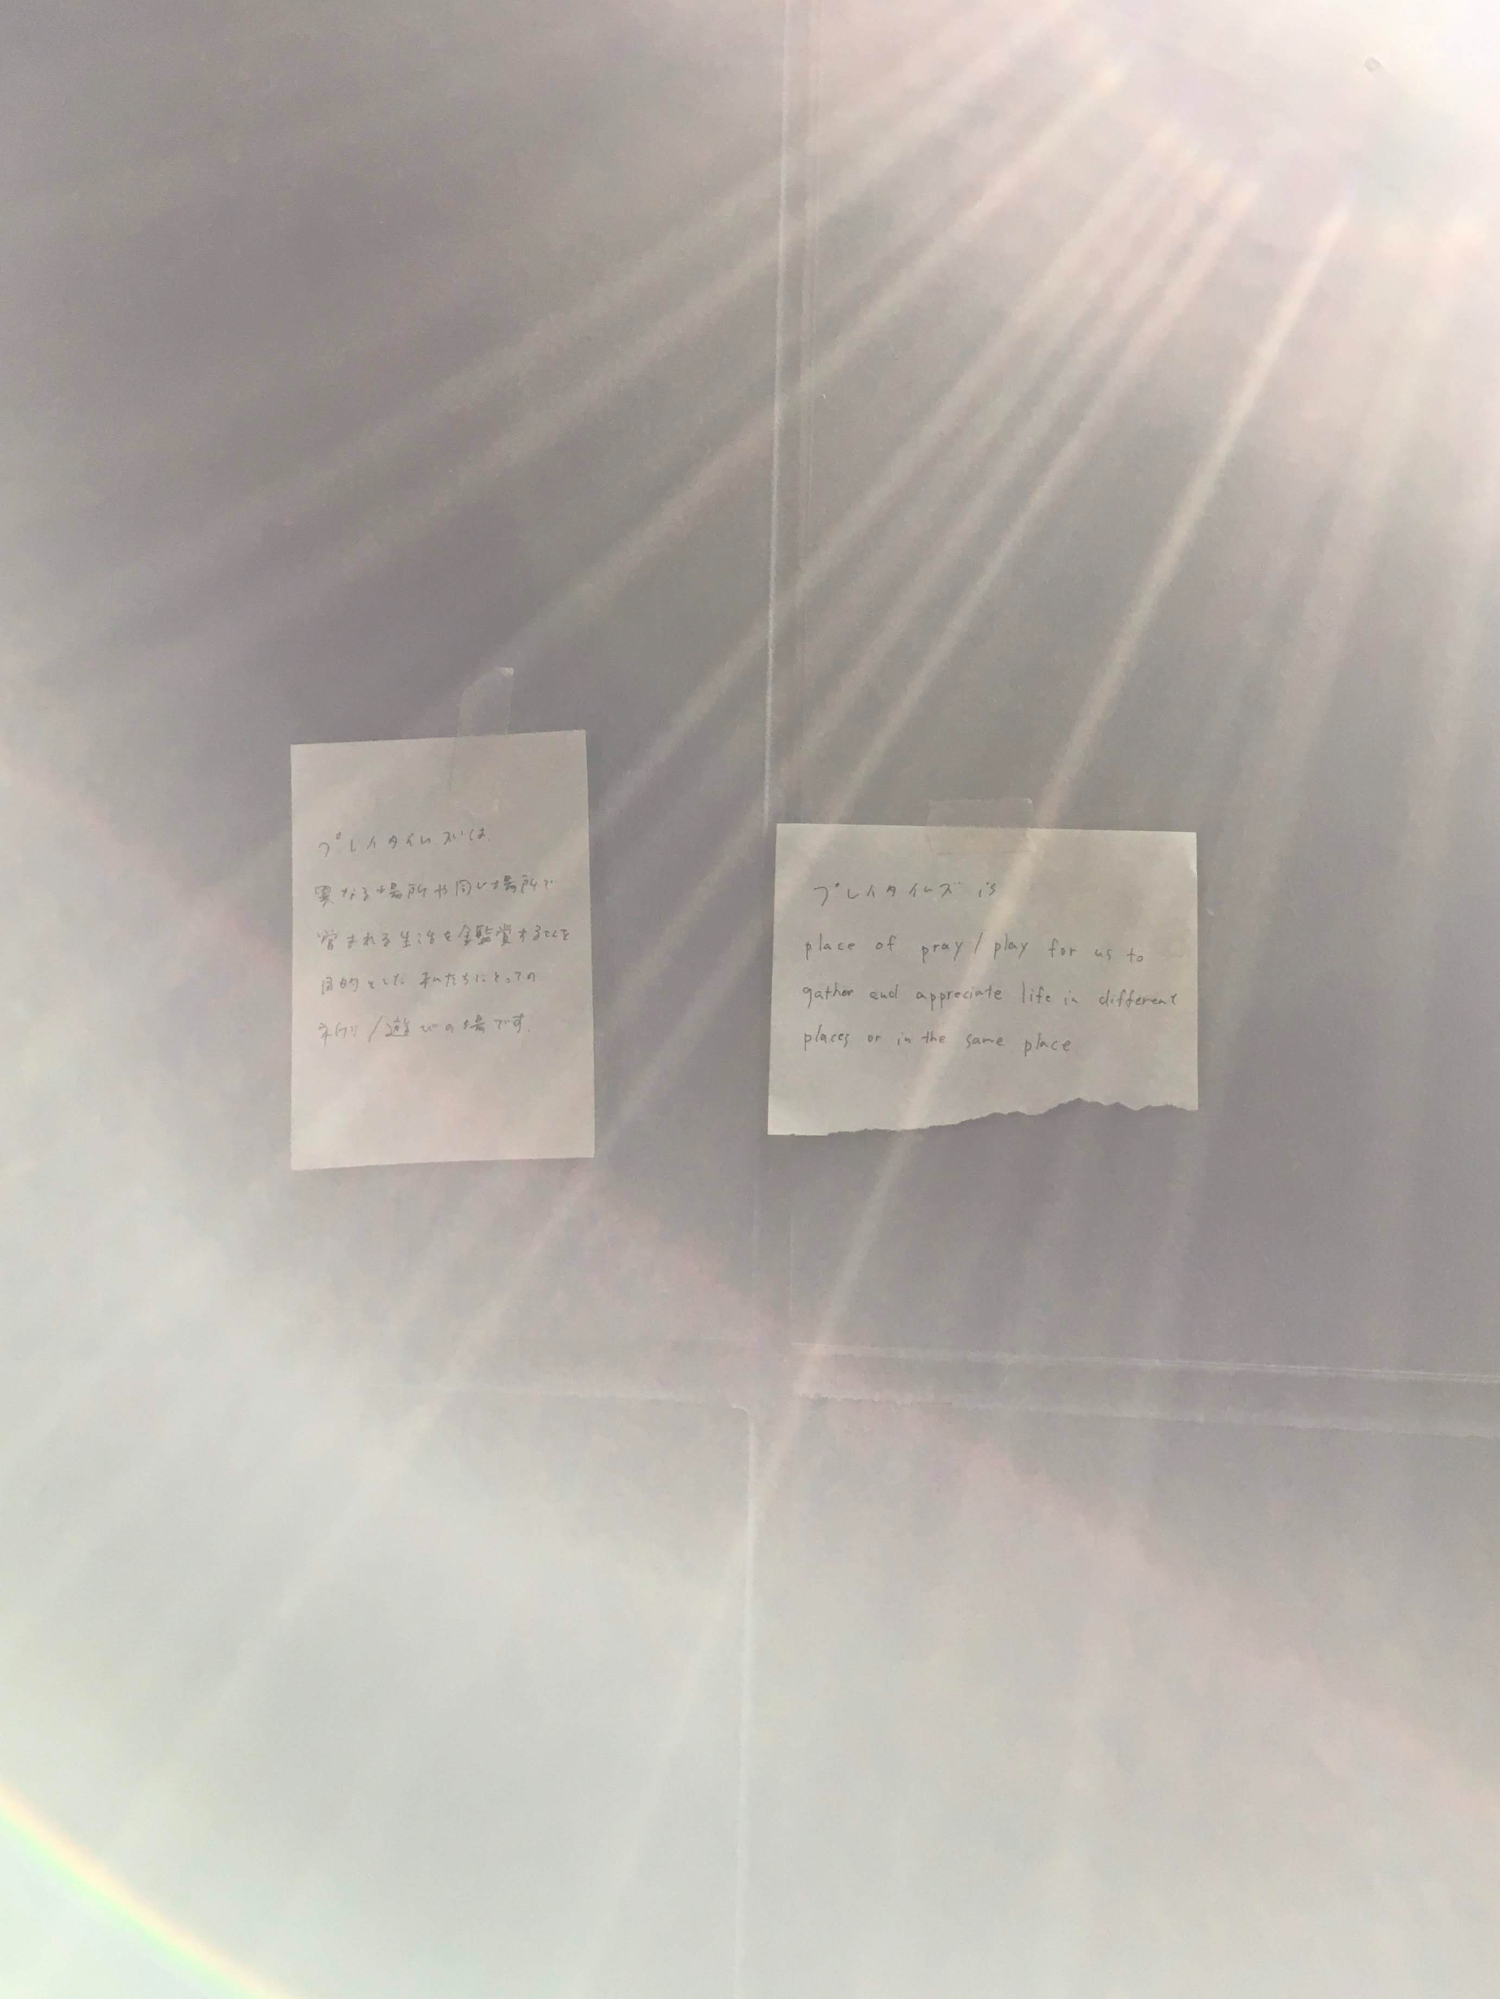 プレイタイムズは、
異なる場所や同じ場所で
営まれる生活を鑑賞することを
目的とした私たちにとっての
祈り/遊びの場です。
プレイタイムズ is
place of pray / play for us to
gather and appreciate life in different
places or in the same place